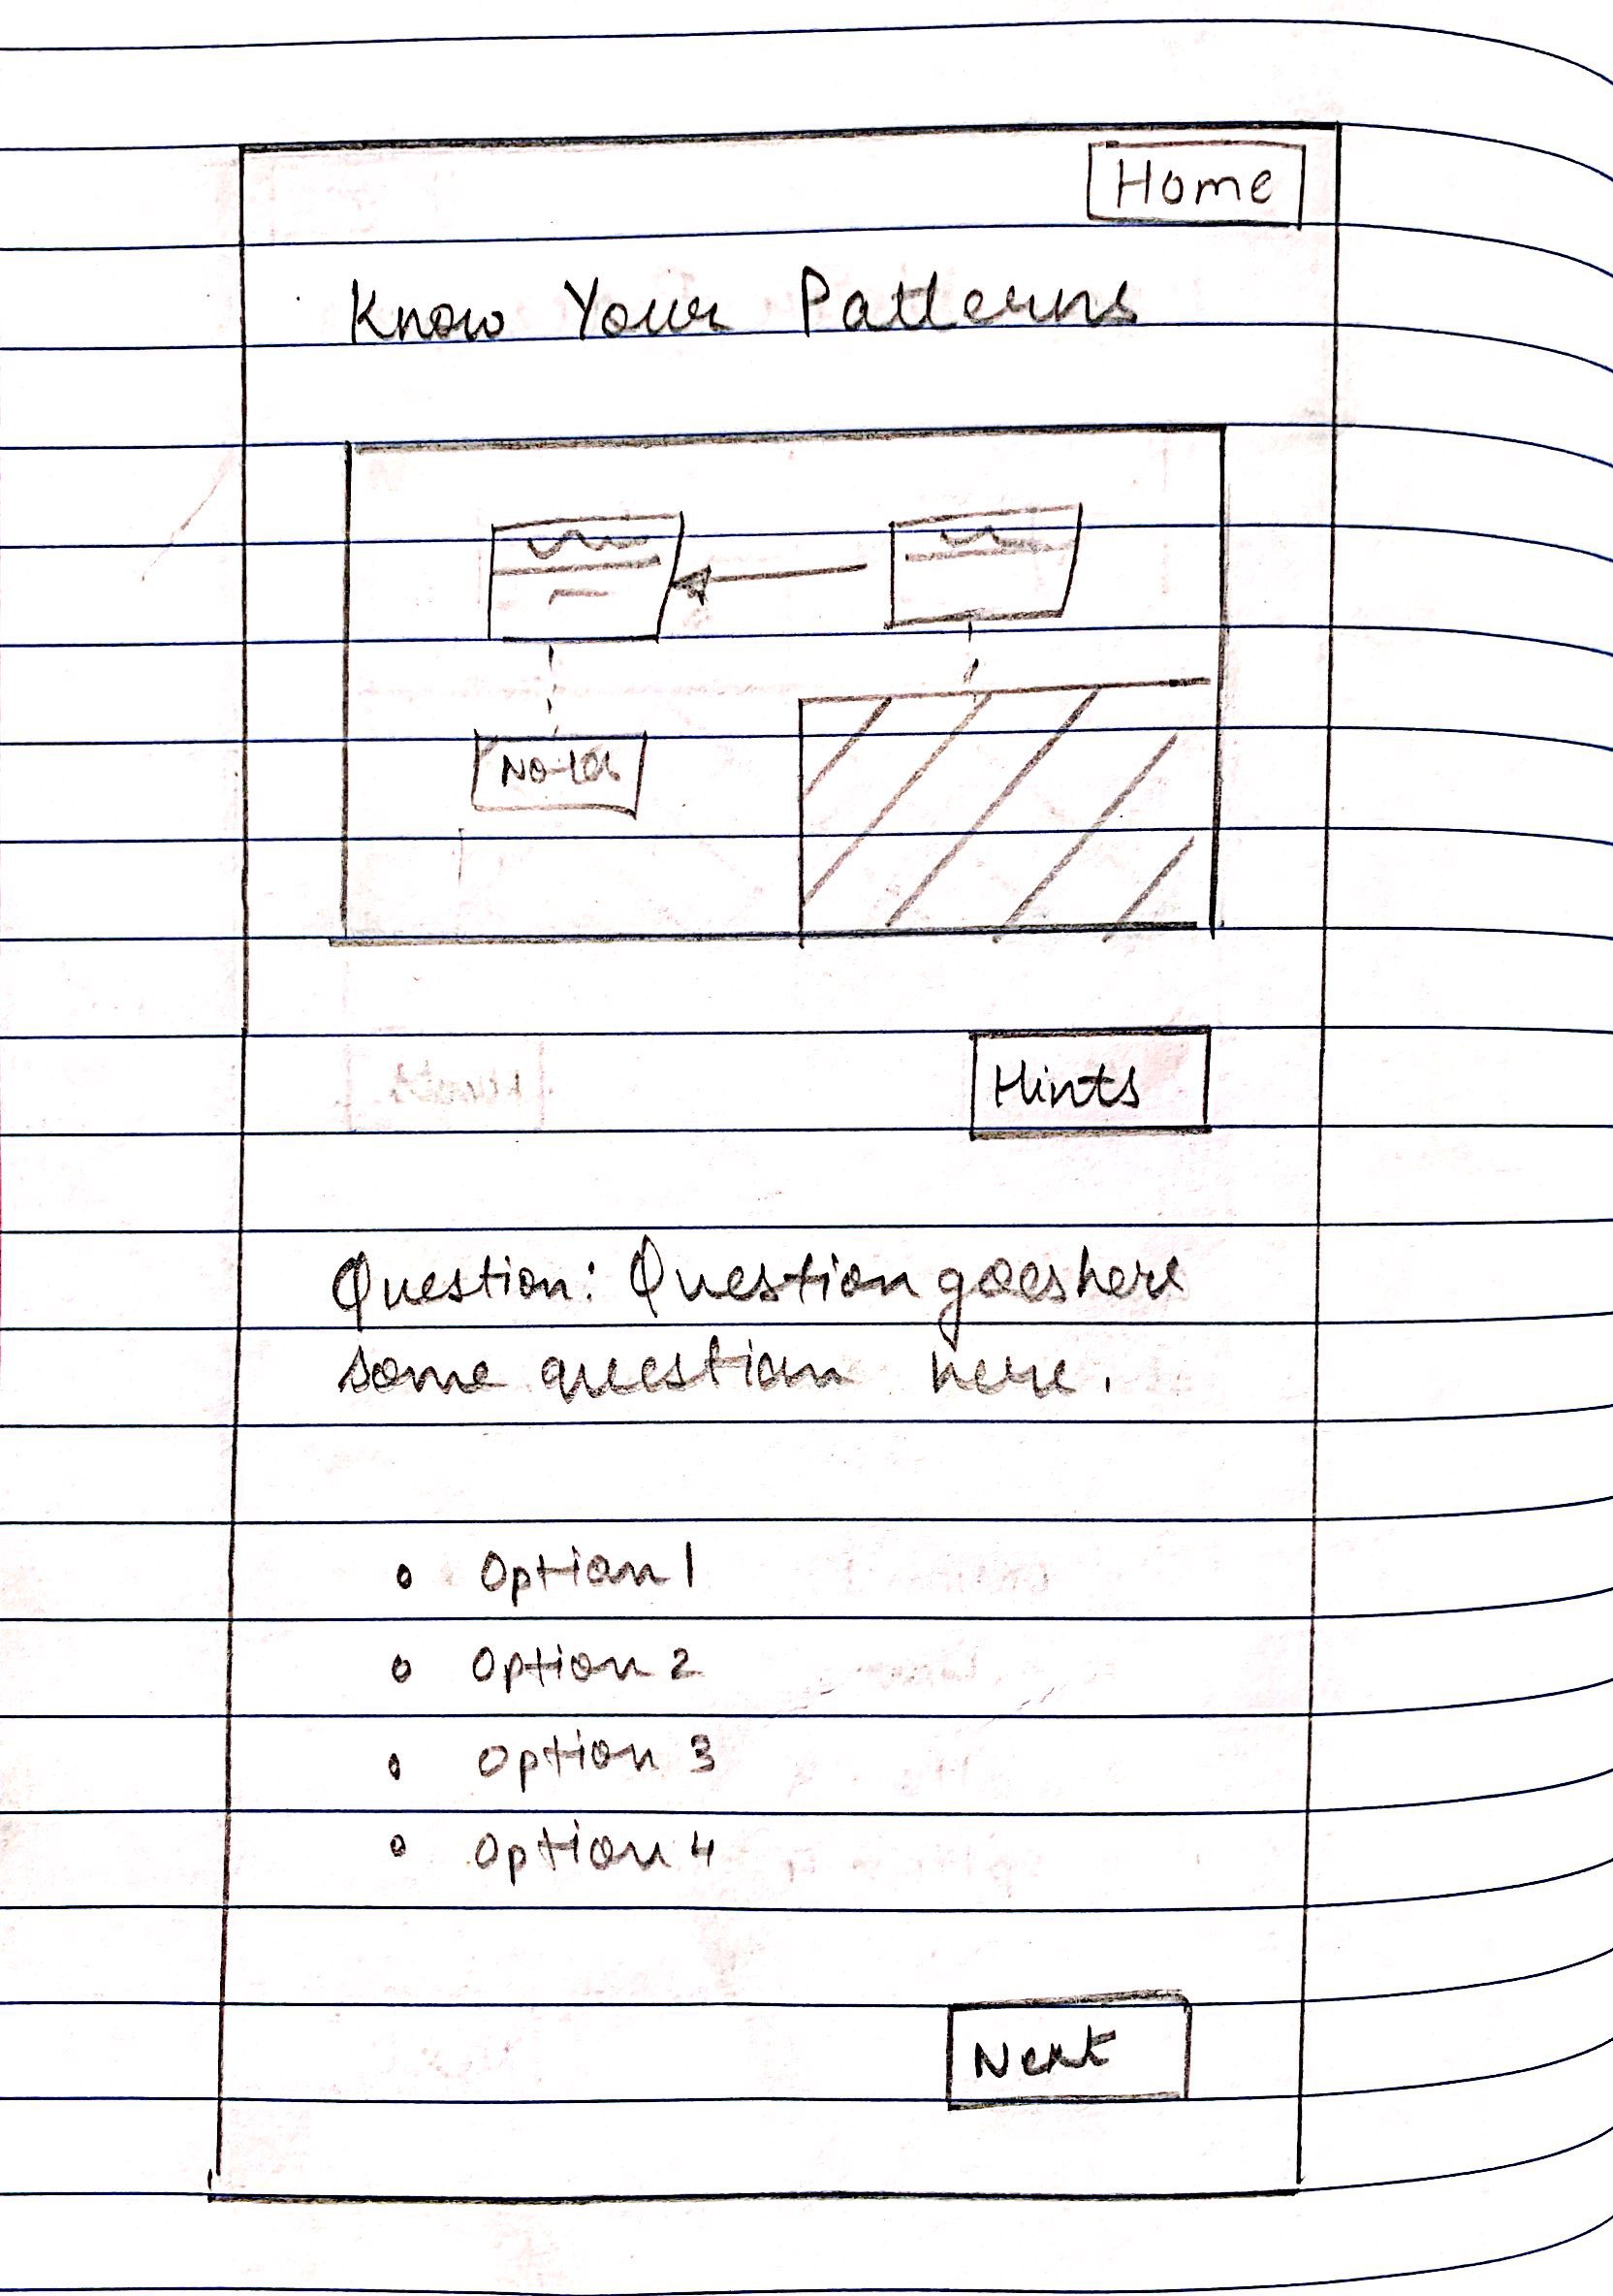 Home
Know Your Patterns
Note
Hints
Question: Question goes here
some question here.
Option 1
Option 2
Option 3
Option 4
Next